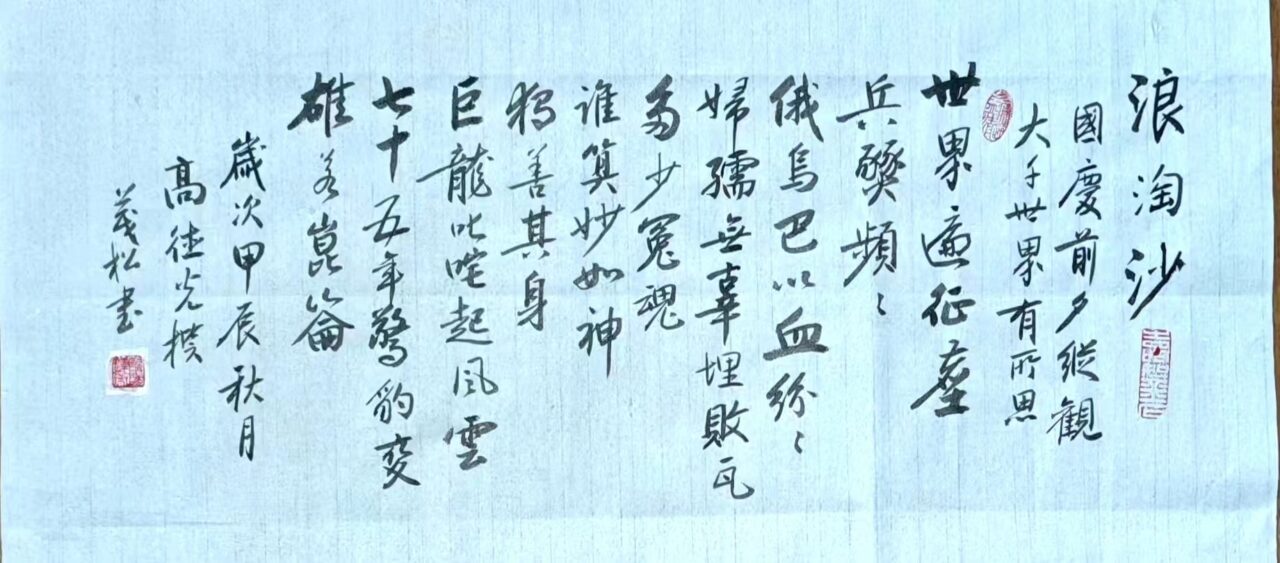 浪淘沙
國慶前夕縱觀
大千世界有所思
世界遍征塵
兵燹頻〻
俄烏巴以血紛〻
婦孺無辜埋敗瓦
多少冤魂
誰算妙如神
独善其身
巨龍叱咤起風雲
七十五年驚豹變
雄若崑崙
歲次甲辰秋月
高德光撰
松書